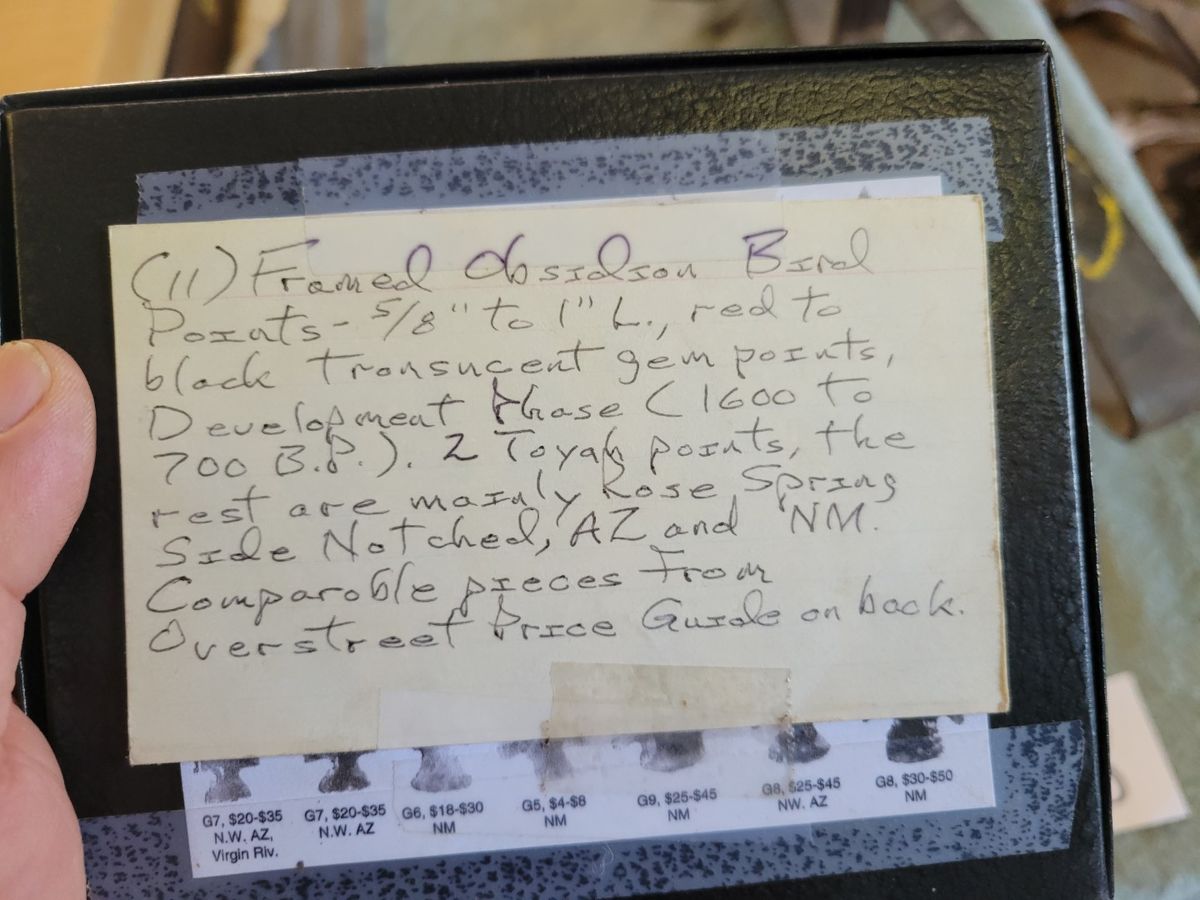 (11) Framed Obsidion Bird
Points - 5/8" to 1" L., red to
black transucent gem points,
Development Phase (1600 to
700 B.P.). 2 Toyah points, the
rest are mainly Rose Spring
Side Notched, AZ and NM.
Comparable pieces from
Overstreet Price Guide on back.
G7, $20-$35 G7, $20-$35 G6, $18-$30 G5, $4-$8 G9, $25-$45 G8, $25-$45 G8, $30-$50
N.W. AZ, N.W. AZ NM NM NM NW. AZ NM
Virgin Riv.